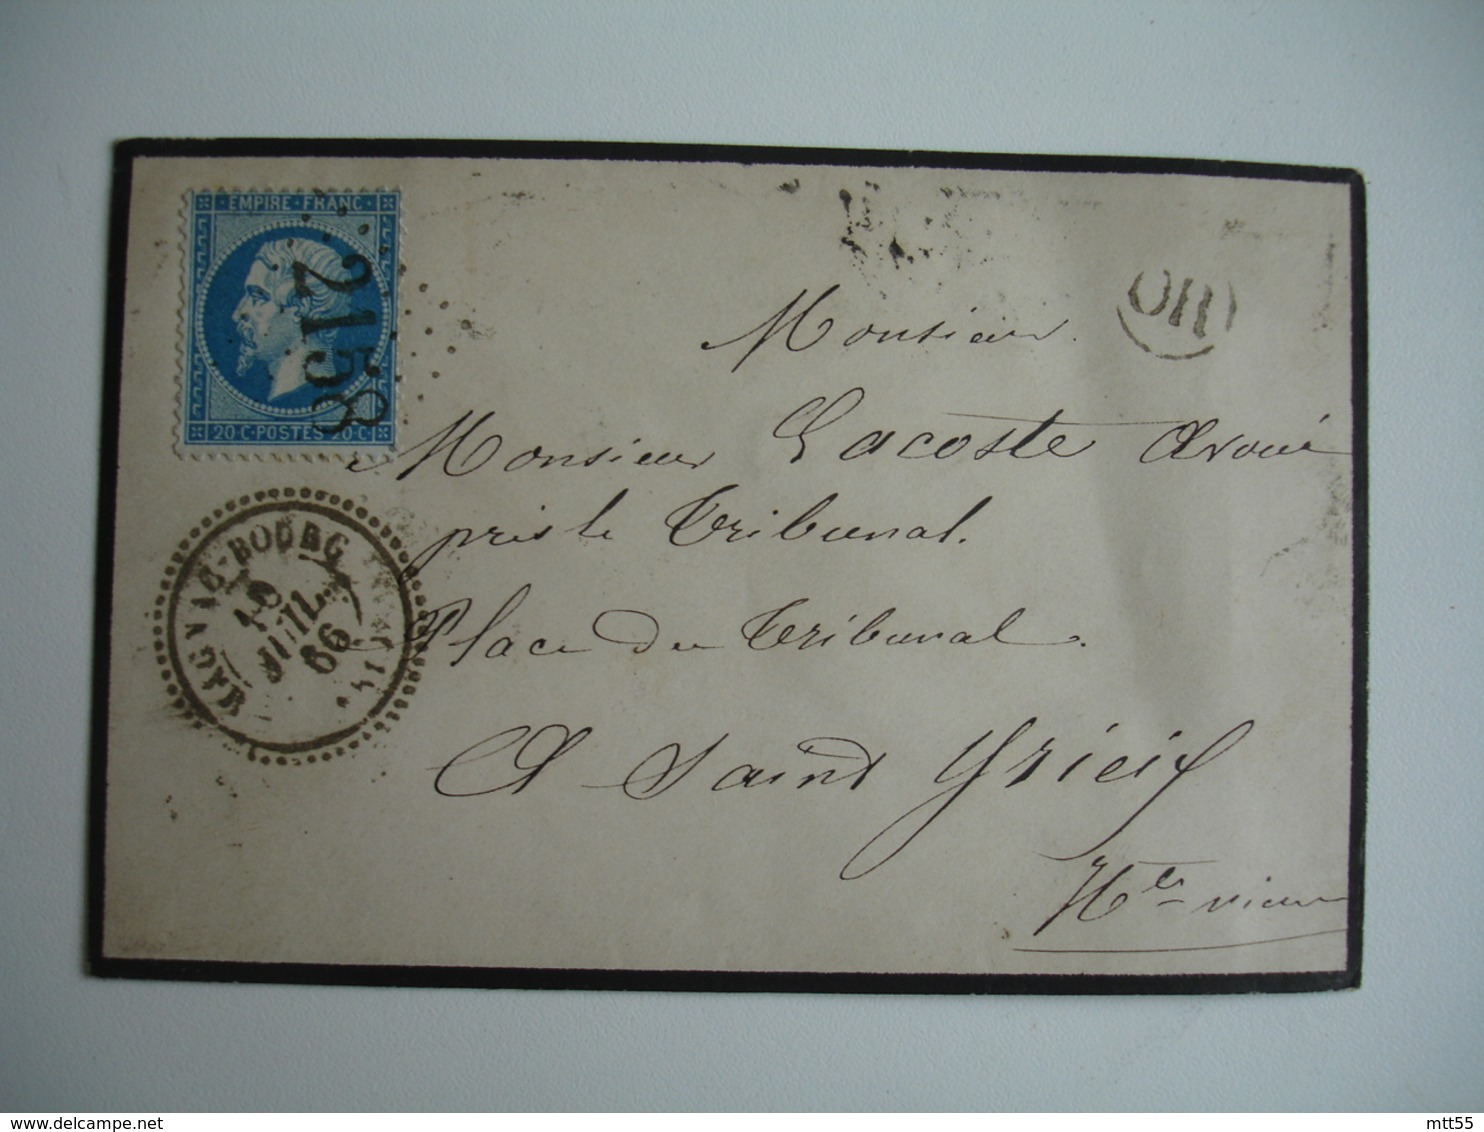 EMPIRE · FRANC ·
2158
20 C · POSTES 20 C
OH
Monsieur
Monsieur Lacoste Avoué
près le Tribunal.
Place du Tribunal.
A Saint Yrieix
Hte vienne
MAGNAC-BOURG
10
JUIL.
66
mtt55